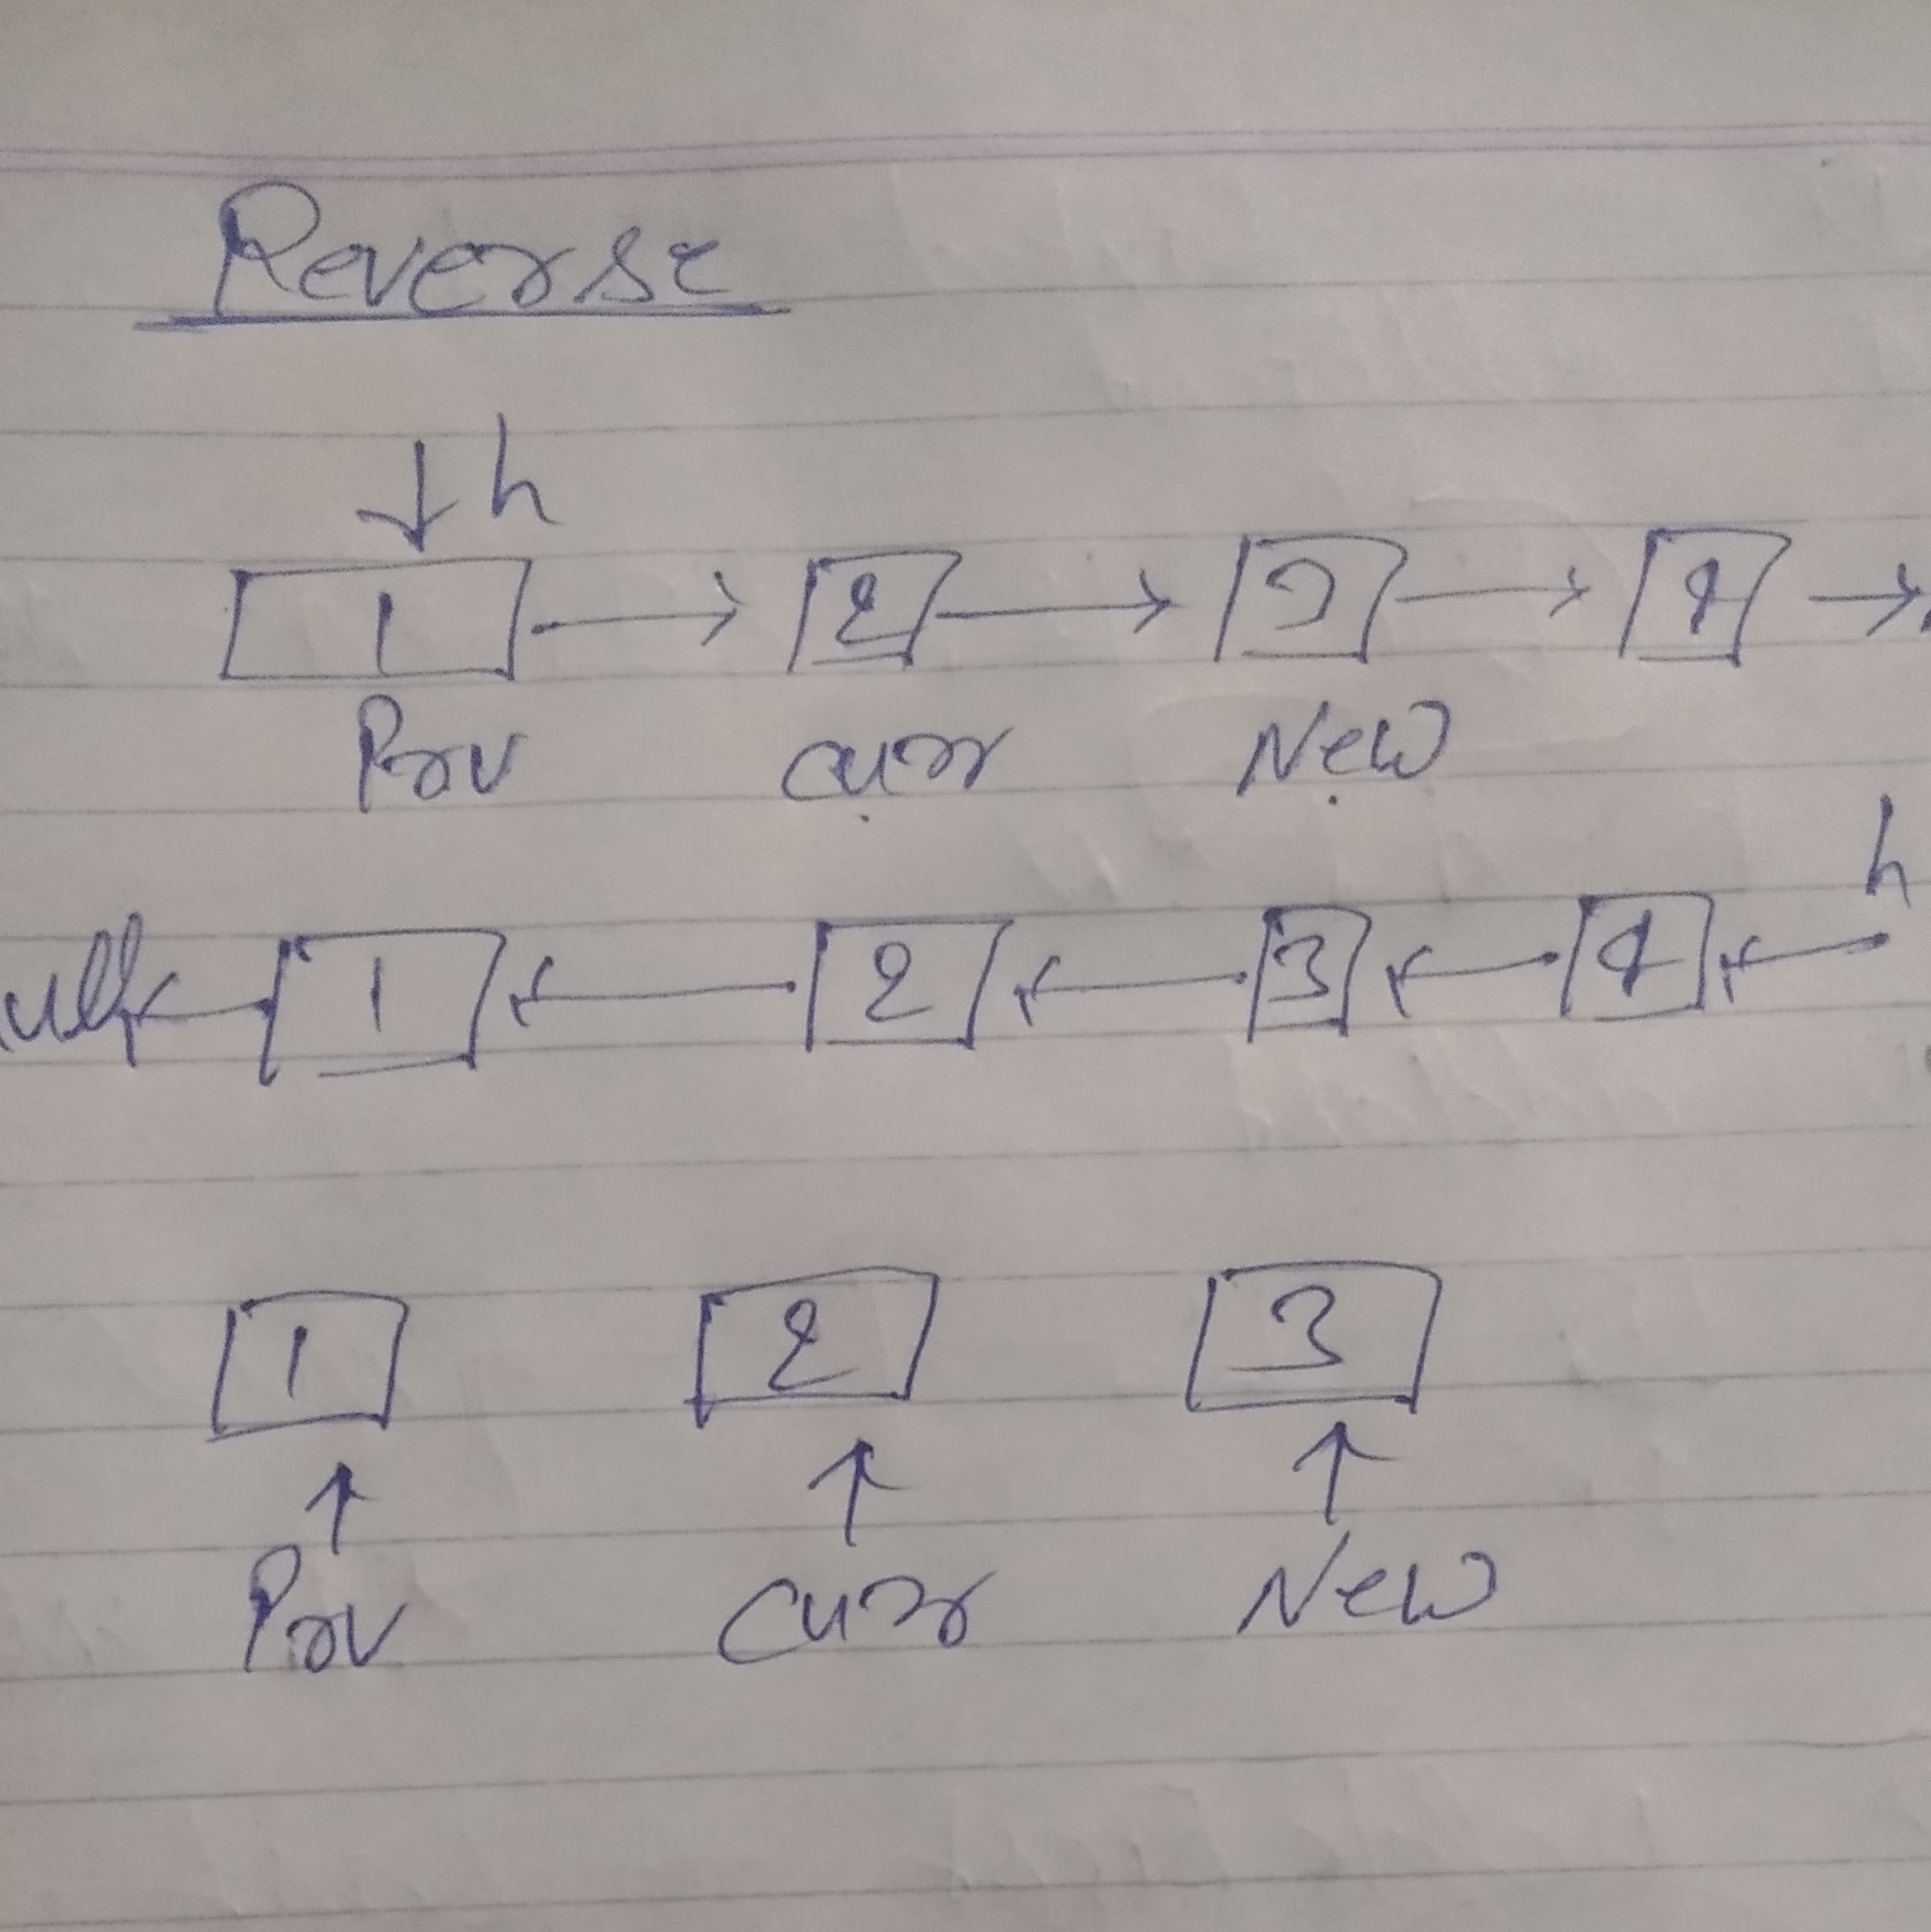 Reverse
h
1 2 3 4
Prv curr New
h
ull 1 2 3 4
1 2 3
Prv curr New